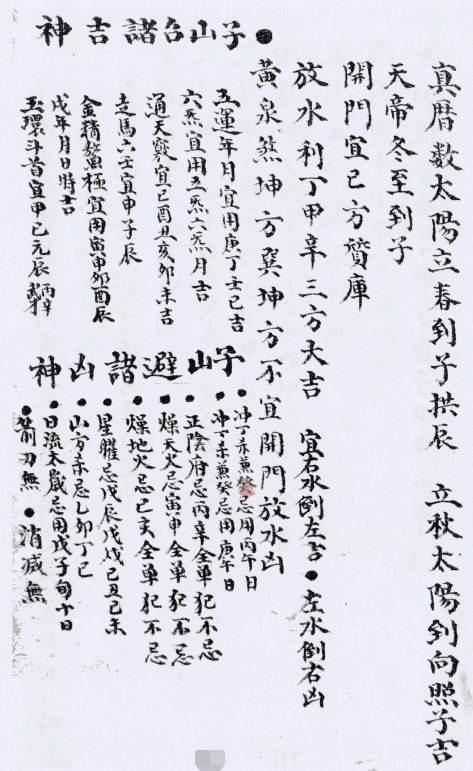 真曆数太陽立春到子拱辰　立秋太陽到向照子吉
天帝冬至到子
開門宜巳方贊庫
放水利丁甲辛三方大吉　宜右水倒左吉●左水倒右凶
黃泉煞坤方巽坤方不宜開門放水凶
●子山合諸吉神
五運年月宜用庚丁壬己吉
六炁宜用五炁六炁月吉
通天竅宜巳酉丑亥卯未吉
走馬六壬宜申子辰
金精鰲極宜用寅申卯酉辰
戊年月日時吉
玉環斗首宜甲己元辰丙辛
子山避諸凶神
●冲丁未兼癸忌用丙午日
●冲丁未兼癸忌用庚午日
●正陰府忌丙辛全单犯不忌
●燥天火忌寅申全单犯不忌
●燥地火忌巳亥全单犯不忌
●星曜忌戊辰戊戌己丑己未
●山方杀忌乙卯丁巳
●日流太歲忌用戊子旬十日
●箭刃無●消滅無